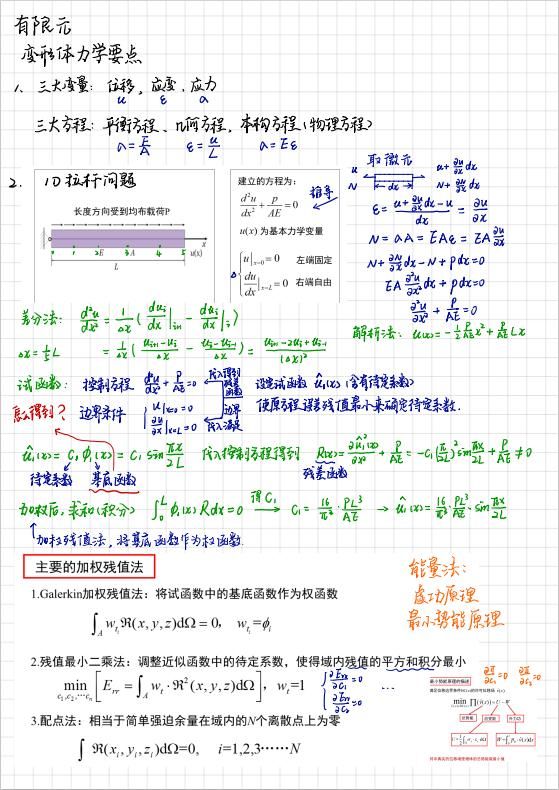 有限元
变形体力学要点
1、三大变量：位移，应变、应力
u ε σ
三大方程：平衡方程、几何方程，本构方程(物理方程)
σ=F/A ε=u/L σ=Eε
2、1D拉杆问题
长度方向受到均布载荷P
1 2 3 4 5 u(x) x
E A
L
建立的方程为：
d²u/dx² + p/AE = 0
u(x) 为基本力学变量
u|x=0 = 0 左端固定
du/dx|x=L = 0 右端自由
推导
取微元
u u+∂u/∂x dx
N dx N+∂N/∂x dx
ε = (u+∂u/∂x dx-u)/dx = ∂u/∂x
N = σA = EAε = EA ∂u/∂x
N+∂N/∂x dx-N+pdx=0
EA ∂²u/∂x² dx + pdx=0
∂²u/∂x² + P/AE = 0
差分法： d²u/dx² = 1/Δx (du/dx|i+1 - du/dx|i)
Δx=1/5 L = 1/Δx ((ui+1-ui)/Δx - (ui-ui-1)/Δx) = (ui+1-2ui+ui-1)/(Δx)²
解析法： u(x)=-1/2 P/AE x² + P/AE Lx
试函数： 控制方程 d²u/dx² + P/AE = 0 代入得到残差函数 设定试函数 û₁(x) (含有待定系数)
怎么得到？ 边界条件 u|x=0=0 ∂u/∂x|x=L=0 边界代入满足 使原方程误差残值最小来确定待定系数.
û₁(x) = C₁ϕ₁(x) = C₁ sin πx/2L 代入控制方程得到 R(x)=∂²û₁(x)/∂x² + P/AE = -C₁(π/2L)² sin πx/2L + P/AE ≠ 0
待定系数 基底函数 残差函数
加权后，求和(积分) ∫₀ᴸ ϕ₁(x) R dx = 0 得C₁ → C₁ = 16/π³ · PL²/AE → û₁(x) = 16/π³ · PL²/AE · sin πx/2L
加权残值法，将基底函数作为权函数.
主要的加权残值法
1.Galerkin加权残值法：将试函数中的基底函数作为权函数
∫A wti ℜ(x, y, z)dΩ = 0， wti = ϕi
2.残值最小二乘法：调整近似函数中的待定系数，使得域内残值的平方和积分最小
min c₁,c₂,…cn [Err = ∫A wt · ℜ²(x, y, z)dΩ]， wt=1
∂Err/∂C₁=0
∂Err/∂C₂=0
…
3.配点法：相当于简单强迫余量在域内的N个离散点上为零
∫ ℜ(xi, yi, zi)dΩ=0, i=1,2,3……N
能量法：
虚功原理
最小势能原理
最小势能原理的描述
∂Π/∂C₁=0 ∂Π/∂C₂=0
应变能
外力功